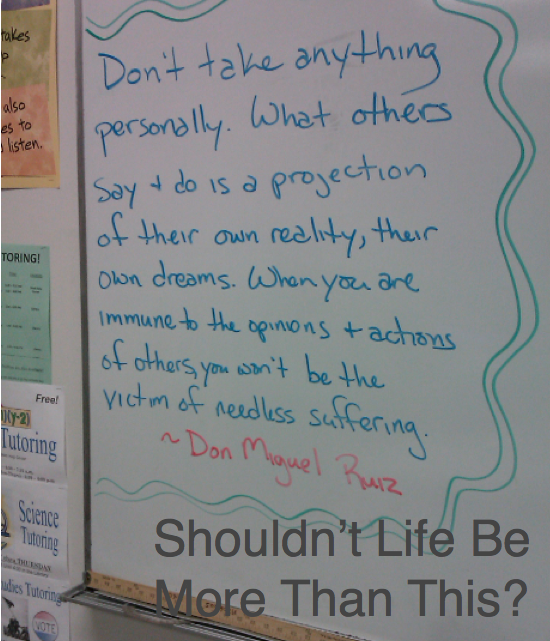 Don't take anything
personally. What others
say + do is a projection
of their own reality, their
own dreams. When you are
immune to the opinions + actions
of others, you won't be the
victim of needless suffering.
~ Don Miguel Ruiz
Shouldn't Life Be
More Than This?
takes
also
es to
listen.
TORING!
Free!
Tutoring
Science
Tutoring
THURSDAY
udies Tutoring
VOTE